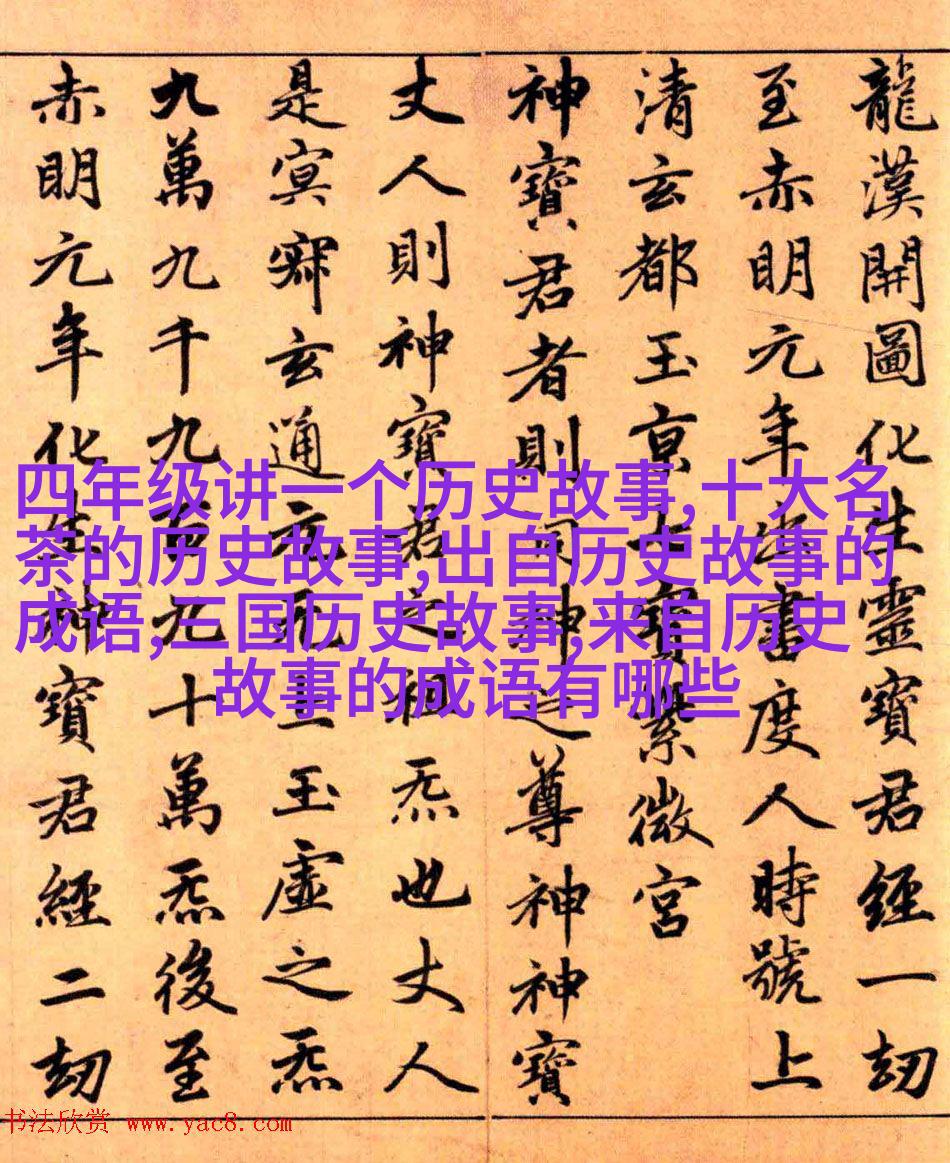 龍漢開圖化生靈寶君經一劫
至赤明元年出書度人時號上
清玄都玉京七寶紫微宮
神寶君者則洞神之尊神神寶
丈人則神寶君之祖炁也丈人
是冥寂玄通元无上玉虛之炁
九萬九千九百九十萬炁後至
赤明元年化生神寶君經二劫
四年级讲一个历史故事,十大名
茶的历史故事,出自历史故事的
成语,三国历史故事,来自历史
故事的成语有哪些
书法欣赏 www.yac8.com